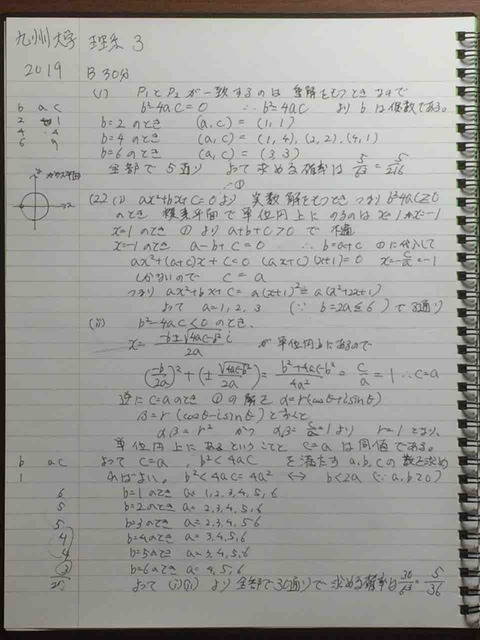 九州大学 理系 3
2019 B 30分
(1) P₁とP₂が一致するのは重解をもつときなので
b²-4ac=0 ∴ b²=4ac より bは偶数である。
b a c
2 1 1
b=2のとき (a,c)=(1,1)
b=4のとき (a,c)=(1,4),(2,2),(4,1)
b=6のとき (a,c)=(3,3)
全部で5通り よって求める確率は 5/6³=5/216
(2) (i) ax²+bx+c=0より 実数解をもつとき つまりb²-4ac≧0
のとき 複素平面で単位円上にのるのはx=1かx=-1
x=1のとき ①よりa+b+c>0で 不適
x=-1のとき a-b+c=0 ∴ b=a+c ①に代入して
ax²+(a+c)x+c=0 (ax+c)(x+1)=0 x=-c/a=-1
しかないので c=a
つまり ax²+bx+c=a(x+1)²=a(x²+2x+1)
よって a=1,2,3 (∵ b=2a≦6)で3通り
(ii) b²-4ac<0のとき、
x=(-b±√(4ac-b²)i)/2a が単位円上にあるので
(-b/2a)²+(±√(4ac-b²)/2a)²=(b²+4ac-b²)/4a²=c/a=1 ∴c=a
逆にc=aのとき ①の解を α=r(cosθ+isinθ)
β=r(cosθ-isinθ)とおくと
αβ=r² かつ αβ=c/a=1より r=1となり、
単位円上にあるということと c=aは同値である。
よって c=a, b²<4ac を満たすa,b,cの数を求め
ればよい。b²<4ac=4a² ⟷ b<2a (∵ a,b>0)
b ac
1
6 b=1のとき a=1,2,3,4,5,6
5 b=2のとき a=2,3,4,5,6
5 b=3のとき a=2,3,4,5,6
4 b=4のとき a=3,4,5,6
4 b=5のとき a=3,4,5,6
3 b=6のとき a=4,5,6
よって (i)(ii)より 全部で30通りで 求める確率は30/6³=5/36